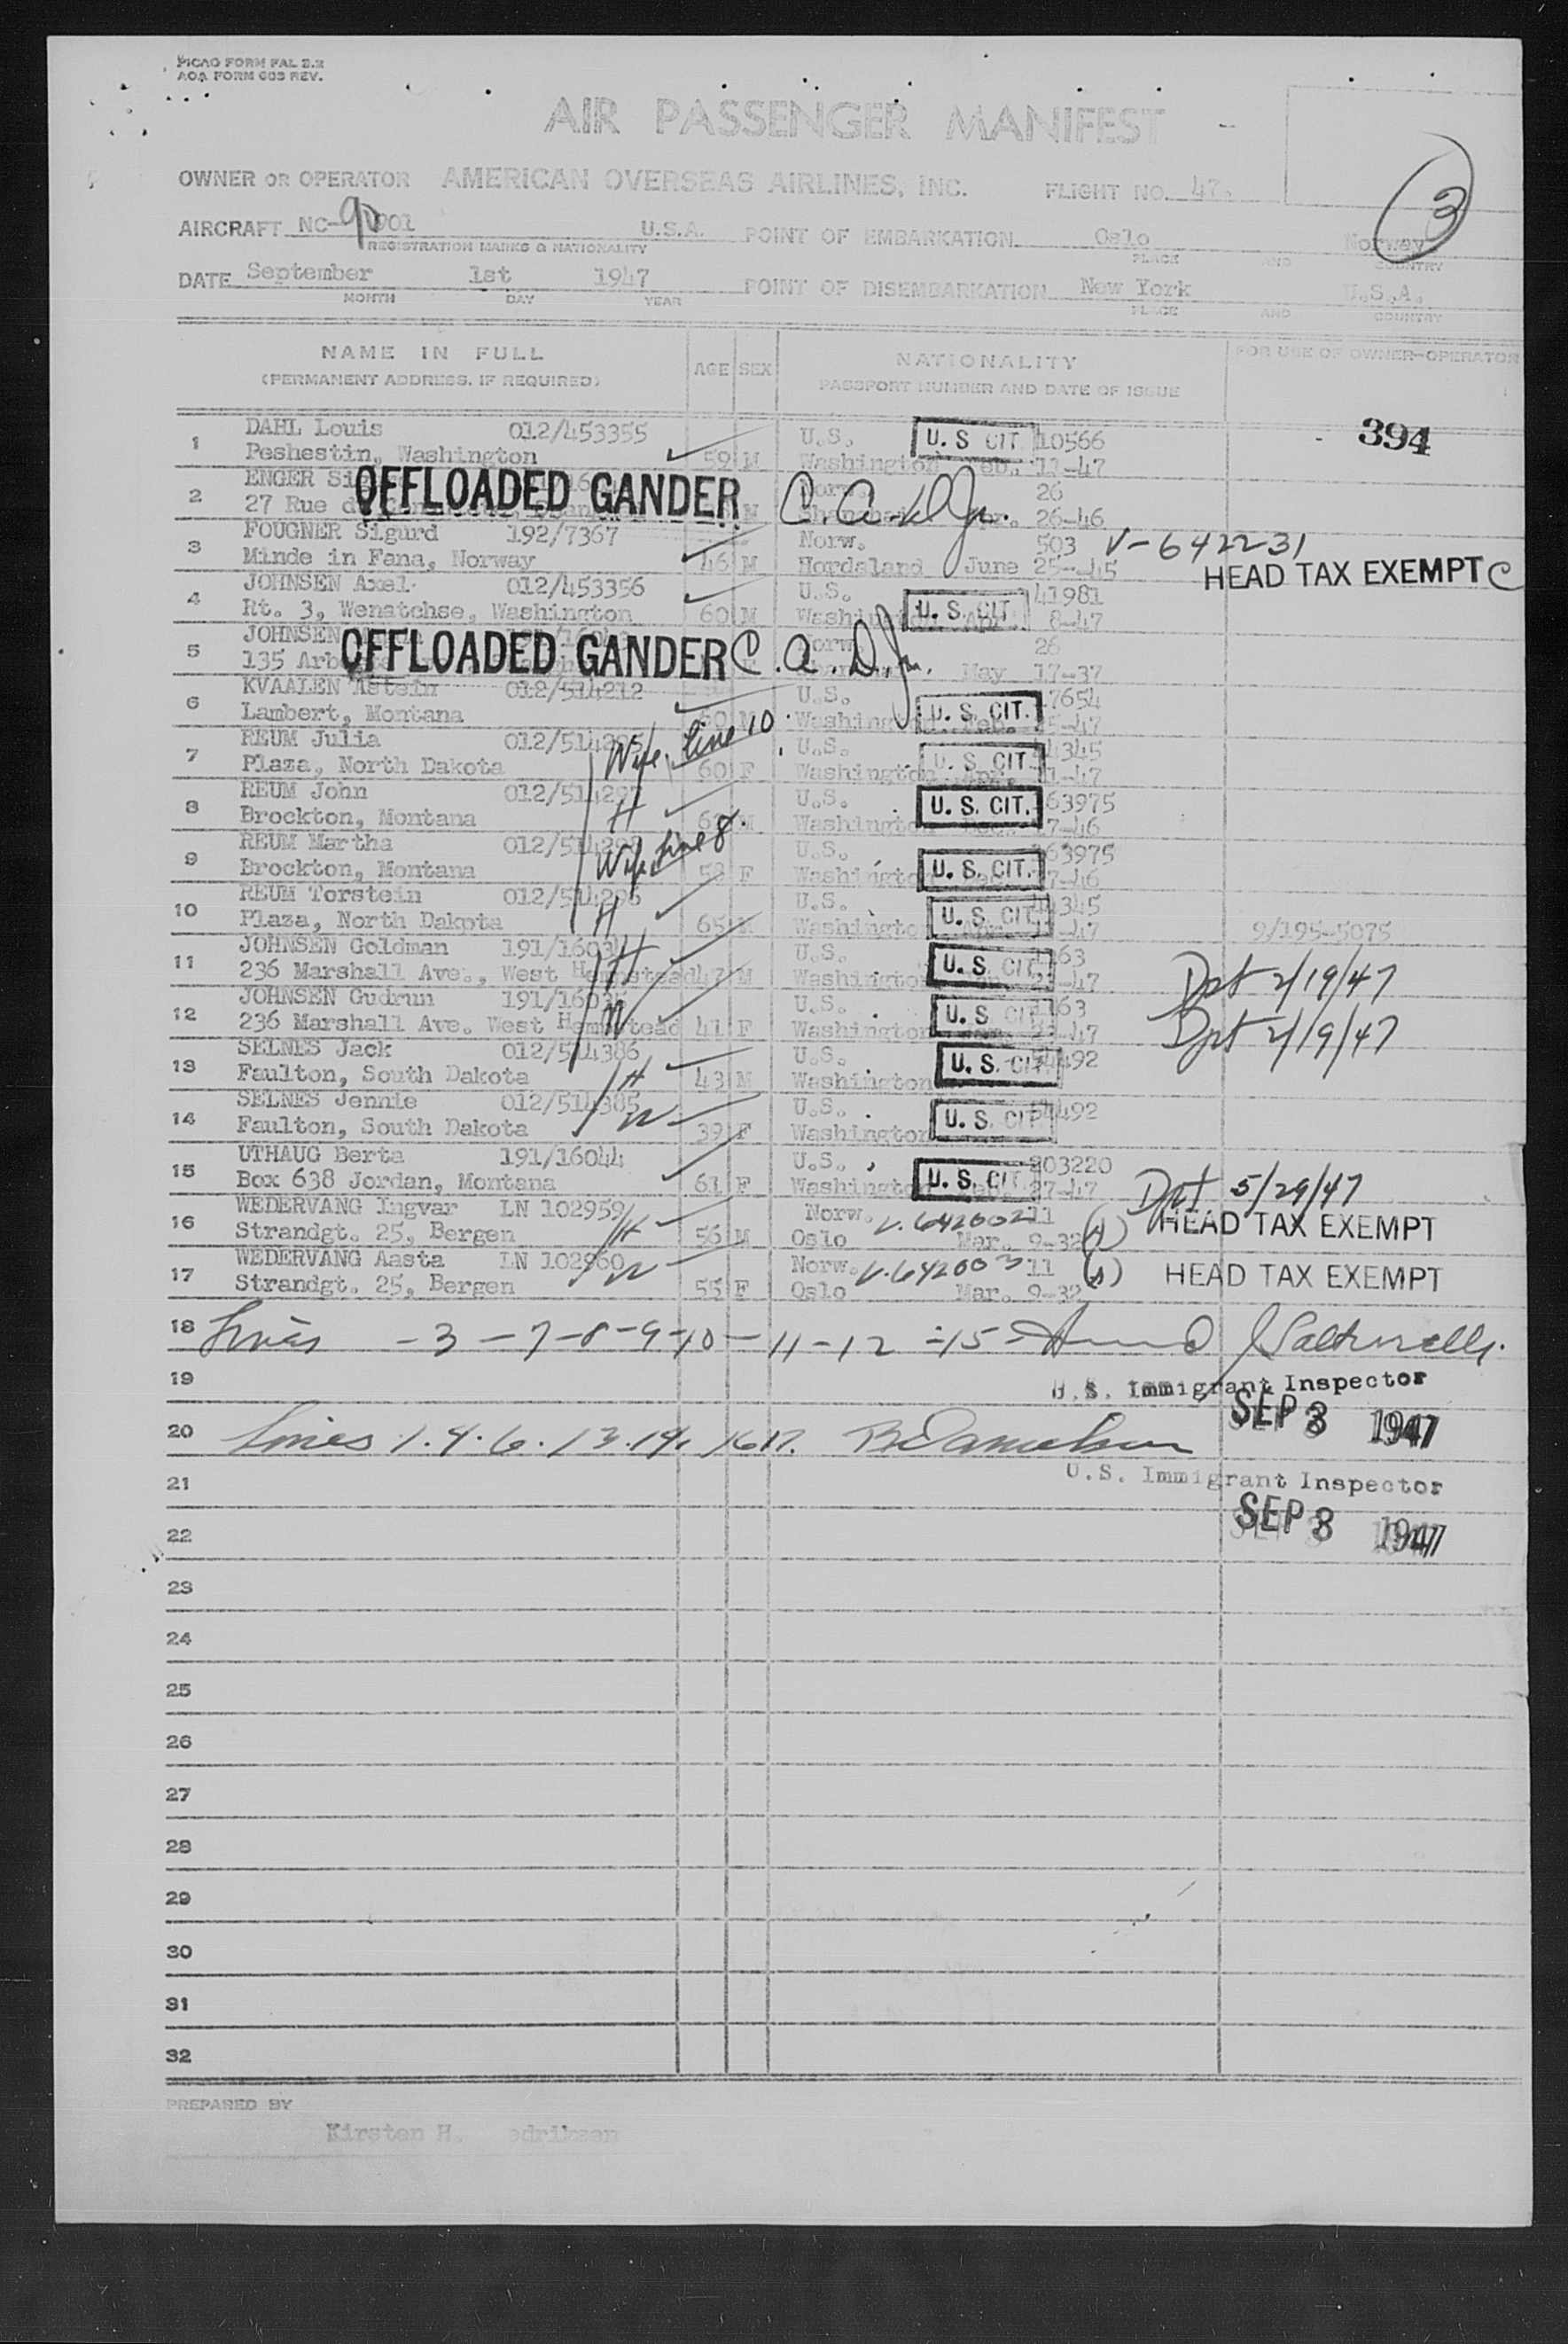 PICAO FORM FAL 3.2
AOA FORM 603 REV.
AIR PASSENGER MANIFEST
3
OWNER OR OPERATOR AMERICAN OVERSEAS AIRLINES, INC. FLIGHT NO. 47.
AIRCRAFT NC-90901 U.S.A. POINT OF EMBARKATION Oslo Norway
REGISTRATION MARKS & NATIONALITY PLACE AND COUNTRY
DATE September 1st 1947 POINT OF DISEMBARKATION New York U.S.A.
MONTH DAY YEAR PLACE AND COUNTRY
NAME IN FULL AGE SEX NATIONALITY FOR USE OF OWNER-OPERATOR
(PERMANENT ADDRESS, IF REQUIRED) PASSPORT NUMBER AND DATE OF ISSUE
1 DAHL Louis 012/453355 U.S. U. S CIT 10566 394
Peshestin, Washington 59 M Washington Feb. 11-47
2 ENGER OFFLOADED GANDER C. A. D Jr. Norw. 26
27 Rue M 26-46
3 FOUGNER Sigurd 192/7367 Norw. 503 V-642231
Minde in Fana, Norway 46 M Hordaland June 25-45 HEAD TAX EXEMPT C
4 JOHNSEN Axel 012/453356 U.S. 41981
Rt. 3, Wenatchse, Washington 60 M Washington U. S. CIT. Apr. 8-47
5 JOHNSEN OFFLOADED GANDER C. A. D. Jr. Norw. 26
135 May 17-37
6 KVAALEN Astein 012/514212 U.S. U. S. CIT. 7654
Lambert, Montana 60 M Washington Feb. -47
7 REUM Julia 012/514295 Wife line 10. U.S. U. S. CIT. 44345
Plaza, North Dakota 60 F Washington Apr. 11-47
8 REUM John 012/514297 H U.S. U. S. CIT. 63975
Brockton, Montana M Washington Dec. 17-46
9 REUM Martha Wife line 8. U.S. U. S. CIT. 63975
Brockton, Montana 58 F Washington 17-46
10 REUM Torstein 012/514296 H U.S. U. S. CIT. 44345
Plaza, North Dakota 65 M Washington 11-47 9/195-5075
11 JOHNSEN Goldman 191/16034 H U.S. U. S. CIT. 1163
236 Marshall Ave., West Hempstead 47 M Washington 23-47 Dpt 2/19/47
12 JOHNSEN Gudrun 191/16035 W U.S. U. S. CIT. 1163
236 Marshall Ave. West Hempstead 41 F Washington 23-47 Dpt 2/19/47
13 SELNES Jack 012/514386 H U.S. U. S. CIT. 54492
Faulton, South Dakota 43 M Washington
14 SELNES Jennie 012/514385 W U.S. U. S. CIT. 54492
Faulton, South Dakota 39 F Washington
15 UTHAUG Berta 191/16044 U.S. U. S. CIT. 203220
Box 638 Jordan, Montana 61 F Washington Feb. 27-47 Dpt 5/29/47
16 WEDERVANG Ingvar LN 102959 H Norw. V.642002 11
Strandgt. 25, Bergen 56 M Oslo Mar. 9-32 (s) HEAD TAX EXEMPT
17 WEDERVANG Aasta LN 102960 W Norw. V.642003 11
Strandgt. 25, Bergen 55 F Oslo Mar. 9-32 (s) HEAD TAX EXEMPT
18 Lines -3-7-8-9-10-11-12-15-
19 U.S. Immigrant Inspector
SEP 3 1947
20 Lines 1.4.6.13.14.16 17.
21 U.S. Immigrant Inspector
SEP 3 1947
22
23
24
25
26
27
28
29
30
31
32
PREPARED BY
Kirsten H.